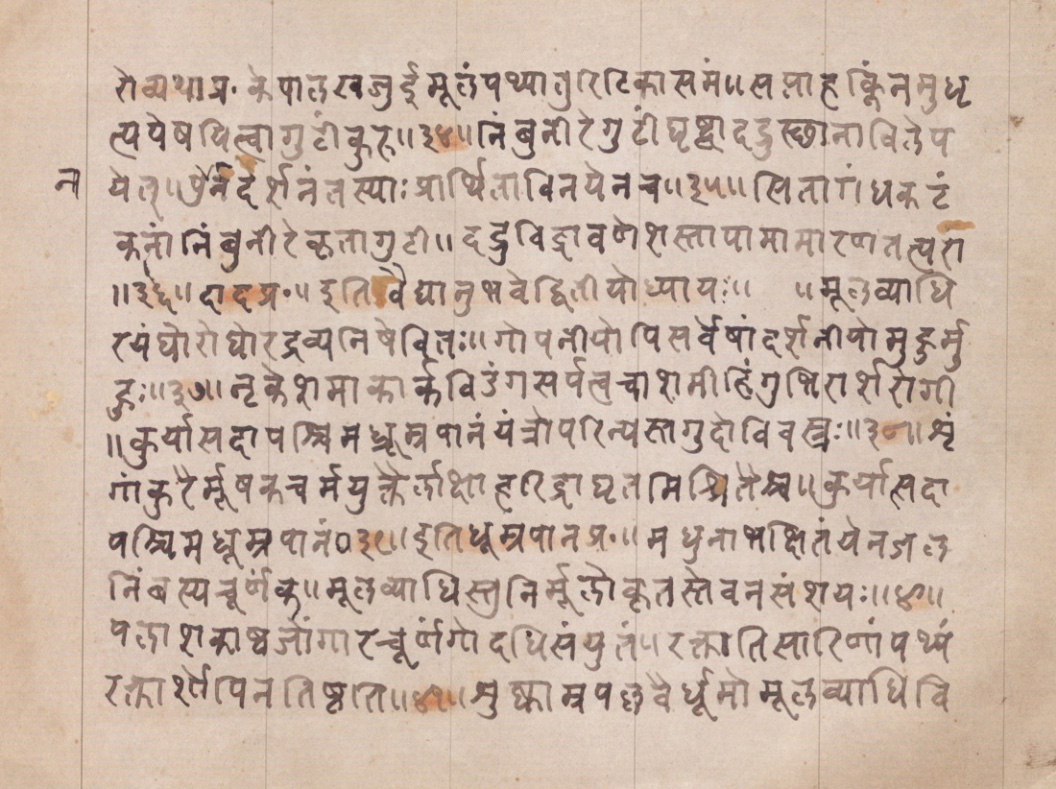 रोव्यथाप्र॰ केपालखर्जुईमूलंपथ्यातुरिटिकासमं॥सप्ताहकिंनमुधृ
त्यपेषयित्वागुटींकुरु॥३४॥निंबुनीरेगुटींघृष्ट्वादद्रुस्छानाविलेप
न
येत्॥पुनर्नदर्शनंतस्याःप्रार्थितीविनयेनच॥३५॥सितागंधकटं
कनांनिंबुनीरेकृतागुटी॥दद्रुविद्रावणेशस्तापामामारणतत्परा
॥३६॥दादप्र॰॥इतिवैद्यानुभवेद्वितीयोध्यायः॥ ॥मूलव्याधि
रयंघोरोघोरद्रव्यनिषेवितः॥गोपनीयोपिसर्वेषांदर्शनीयोमुहुर्मु
हुः॥३७॥नृकेशमाकार्कविडंगसर्पत्वचाशमीहिंगुभिरार्शरोगी
॥कुर्यासदापश्चिमध्रूम्रपानंयंत्रोपरिन्यस्तगुदोविवस्त्रः॥३८॥शृं
गांकुरैर्मूषकचर्मयुक्तैर्लाक्षाहरिद्राघृतमिश्रितैश्च॥कुर्यात्सदा
पश्चिमध्रूम्रपानं०३९॥इतिधूम्रपानप्र॰॥मधुनाभक्षितंयेनजल
निंबस्यचूर्णकं॥मूलव्याधिस्तुनिर्मूलीकृतस्तेवनसंशयः॥४०॥
पलाशकाष्ठजांगारचूर्णंगोदधिसंयुतं॥रक्तातिसारिणांपथ्यं
रक्तार्शोपिनतिष्ठति॥४१॥शुष्काम्रपल्लवैर्धूमोमूलव्याधिवि